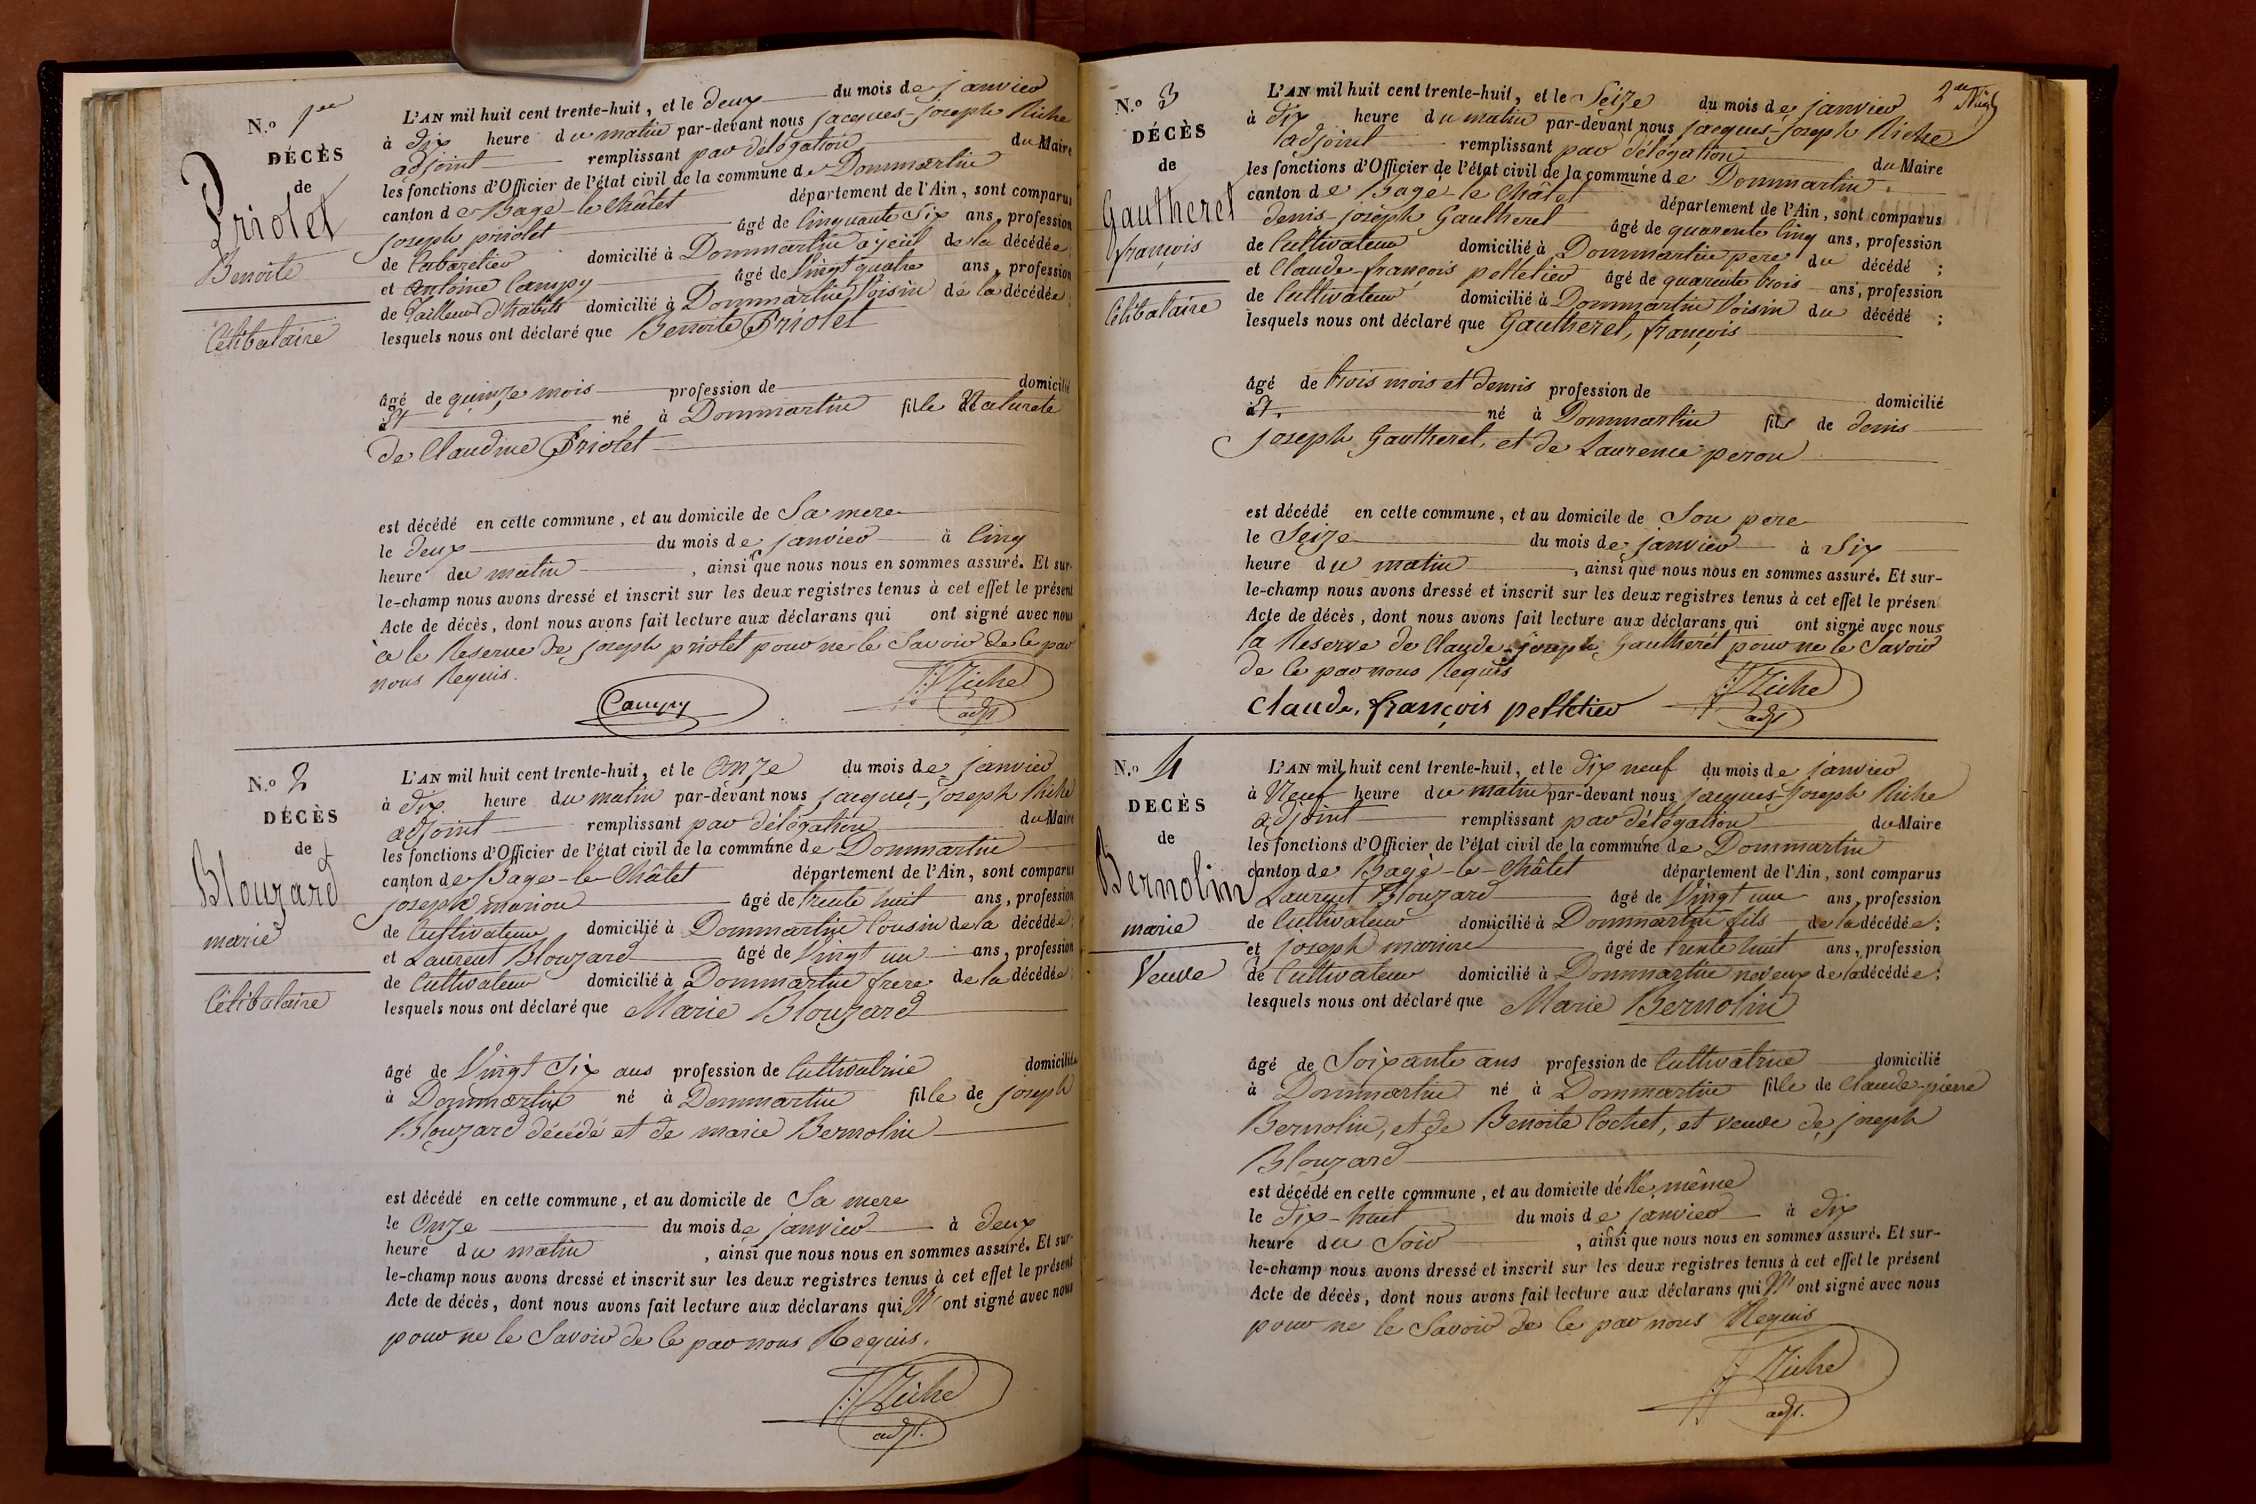 N.o 1er
DÉCÈS
de
Priolet
Benoite
Célibataire
L'AN mil huit cent trente-huit, et le deux du mois de janvier
à dix heure du matin par-devant nous jacques-joseph Riche
adjoint remplissant par délégation du Maire
les fonctions d'Officier de l'état civil de la commune de Dommartin
canton de Bagé-le-Châtel département de l'Ain, sont comparus
joseph priolet âgé de Cinquante Six ans, profession
de Cabaretier domicilié à Dommartin ayeul de la décédée;
et antoine Campy âgé de Vingt quatre ans, profession
de Tailleur d'habits domicilié à Dommartin Voisin de la décédée;
lesquels nous ont déclaré que Benoite Priolet
âgé de quinze mois profession de domicilié
à né à Dommartin fille Naturele
de Claudine Priolet
est décédé en cette commune, et au domicile de Sa mere
le deux du mois de janvier à Cinq
heure du matin, ainsi que nous nous en sommes assuré. Et sur-
le-champ nous avons dressé et inscrit sur les deux registres tenus à cet effet le présent
Acte de décès, dont nous avons fait lecture aux déclarans qui ont signé avec nous
à la Reserve de joseph priolet pour ne le Savoir de ce par
nous Requis.
Campy
Riche
adjt
N.o 2
DÉCÈS
de
Blouzard
marie
Célibataire
L'AN mil huit cent trente-huit, et le Onze du mois de janvier
à dix heure du matin par-devant nous jacques-joseph Riche
adjoint remplissant par délégation du Maire
les fonctions d'Officier de l'état civil de la commune de Dommartin
canton de Bagé-le-Châtel département de l'Ain, sont comparus
joseph marion âgé de trente huit ans, profession
de Cultivateur domicilié à Dommartin Cousin de la décédée;
et Laurent Blouzard âgé de Vingt un ans, profession
de Cultivateur domicilié à Dommartin frere de la décédée;
lesquels nous ont déclaré que Marie Blouzard
âgé de Vingt Six ans profession de Cultivatrice domiciliée
à Dommartin né à Dommartin fille de joseph
Blouzard décédé et de marie Bernolin
est décédé en cette commune, et au domicile de Sa mere
le Onze du mois de janvier à deux
heure du matin, ainsi que nous nous en sommes assuré. Et sur-
le-champ nous avons dressé et inscrit sur les deux registres tenus à cet effet le présent
Acte de décès, dont nous avons fait lecture aux déclarans qui N'ont signé avec nous
pour ne le Savoir de ce par nous Requis.
Riche
adjt.
2me
N.o 3
DÉCÈS
de
Gautheret
françois
Célibataire
L'AN mil huit cent trente-huit, et le Seize du mois de janvier
à dix heure du matin par-devant nous jacques-joseph Riche
adjoint remplissant par délégation du Maire
les fonctions d'Officier de l'état civil de la commune de Dommartin
canton de Bagé-le-Châtel département de l'Ain, sont comparus
denis-joseph Gautheret âgé de quarente Cinq ans, profession
de Cultivateur domicilié à Dommartin pere du décédé;
et Claude-françois pelletier âgé de quarente trois ans, profession
de Cultivateur domicilié à Dommartin Voisin du décédé;
lesquels nous ont déclaré que Gautheret, françois
âgé de trois mois et demis profession de domicilié
à né à Dommartin fils de denis
joseph Gautheret, et de Laurence peron
est décédé en cette commune, et au domicile de Son pere
le Seize du mois de janvier à Six
heure du matin, ainsi que nous nous en sommes assuré. Et sur-
le-champ nous avons dressé et inscrit sur les deux registres tenus à cet effet le présen
Acte de décès, dont nous avons fait lecture aux déclarans qui ont signé avec nous
la Reserve de Claude-joseph Gautheret pour ne le Savoir
de ce par nous Requis
Claude, françois pelletier
Riche
adjt
N.o 4
DECÈS
de
Bernolin
marie
Veuve
L'AN mil huit cent trente-huit, et le dix neuf du mois de janvier
à Neuf heure du matin par-devant nous jacques-joseph Riche
adjoint remplissant par délégation du Maire
les fonctions d'Officier de l'état civil de la commune de Dommartin
canton de Bagé-le-Châtel département de l'Ain, sont comparus
Laurent Blouzard âgé de Vingt un ans, profession
de Cultivateur domicilié à Dommartin fils de la décédée;
et joseph marion âgé de trente huit ans, profession
de Cultivateur domicilié à Dommartin neveux de la décédée;
lesquels nous ont déclaré que Marie Bernolin
âgé de Soixante ans profession de Cultivatrice domicilié
à Dommartin né à Dommartin fille de Claude-pierre
Bernolin, et de Benoite Cochet, et veuve de joseph
Blouzard
est décédé en cette commune, et au domicile d'elle même
le dix-huit du mois de janvier à dix
heure du Soir, ainsi que nous nous en sommes assuré. Et sur-
le-champ nous avons dressé et inscrit sur les deux registres tenus à cet effet le présent
Acte de décès, dont nous avons fait lecture aux déclarans qui N'ont signé avec nous
pour ne le Savoir de ce par nous Requis
Riche
adjt.